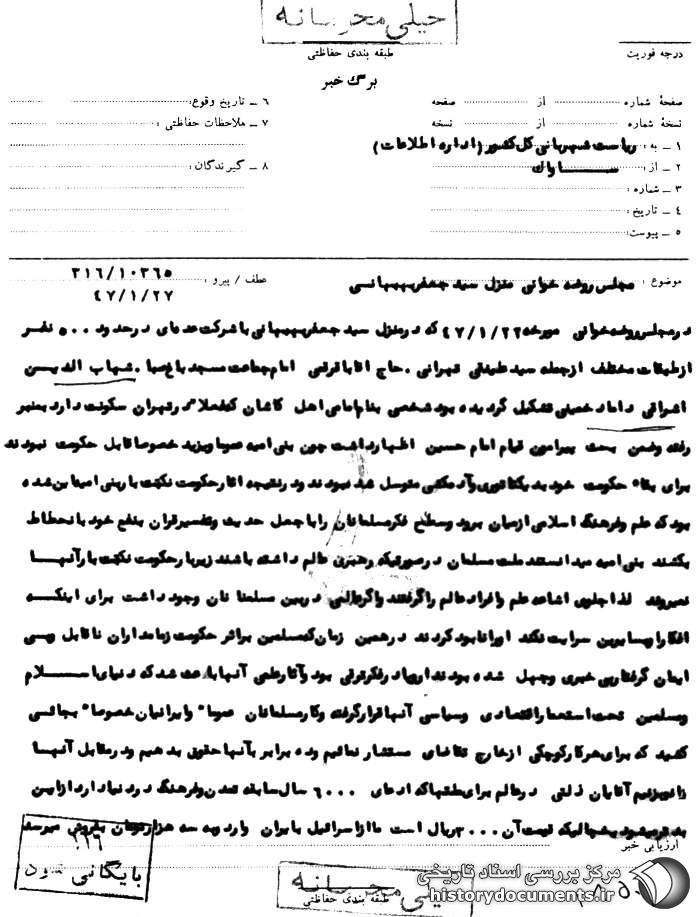 خیلی محرمانه
طبقه بندی حفاظتی
درجه فوریت
برگ خبر
صفحهٔ شماره از صفحه
نسخهٔ شماره از نسخه
۱ ـ به : ریاست شهربانی کل کشور (اداره اطلاعات)
۲ ـ از : ساواک
۳ ـ شماره :
۴ ـ تاریخ :
۵ ـ پیوست :
۶ ـ تاریخ وقوع:
۷ ـ ملاحظات حفاظتی :
۸ ـ گیرندگان :
موضوع : مجلس روضه خوانی منزل سید جعفر بهبهانی
عطف / پیرو : ۳۱۶/۱۰۳۶۵
۴۷/۱/۲۷
در مجلس روضه خوانی مورخه ۴۷/۱/۲۲ که در منزل سید جعفر بهبهانی با شرکت عده‌ای در حدود ۵۰۰ نفر
از طبقات مختلف از جمله سید علینقی تهرانی . حاج اقا باقر قمی امام جماعت مسجد باغ صبا . شهاب الدین
اشراقی داماد خمینی تشکیل گردیده بود شخصی بنام امامی اهل کاشان که فعلا در تهران سکونت دارد بمنبر
رفته وضمن بحث پیرامون قیام امام حسین اظهار داشت چون بنی امیه عموما ویزید خصوصا قابل حکومت نبودند
برای بقاء حکومت خود بدیکتاتوری وآدمکشی متوسل شده بودند ودرنتیجه اثار حکومت نکبت بار بنی امیه این شده
بود که علم وفرهنگ اسلامی ازمیان برود وسطح فکر مسلمانان را با جعل حدیث وتفسیر قران بنفع خود بانحطاط
بکشند بنی امیه میدانستند ملت مسلمان درصورتیکه رهبری عالم داشته باشند زیر بار حکومت نکبت بار آنها
نمیروند لذا جلوی اشاعه علم وافراد عالم را گرفتند واگر عالمی در بین مسلمانان وجود داشت برای اینکه
افکار او بسایرین سرایت نکند اورا نابود کردند در همین زمان که مسلمین بر اثر حکومت زمامداران ناقابل وبی
ایمان گرفتار بی خبری وجهل شده بودند اروپا در فکر ترقی بود وآثار علمی آنها باعث شد که دنیای اسلام
ومسلمین تحت استعمار اقتصادی وسیاسی آنها قرار گرفته وکار مسلمانان عموما وایرانیان خصوصا بجائی
کشید که برای هر کار کوچکی از خارج تقاضای مستشار نمائیم وده برابر بآنها حقوق بدهیم ودرمقابل آنها
زانو بزنیم آقایان ذلتی درعالم برای ملتیکه ادعای ۶۰۰۰ سال سابقه تمدن وفرهنگ در دنیا دارد از این
۳۰۰۰ ریال است ما از اسرائیل بایران وارد وبه سه هزار تومان بفروش میرسد
ارزیابی خبر
۱۱۶
بایگانی شود
خیلی محرمانه
طبقه بندی حفاظتی
مرکز بررسی اسناد تاریخی
historydocuments.ir